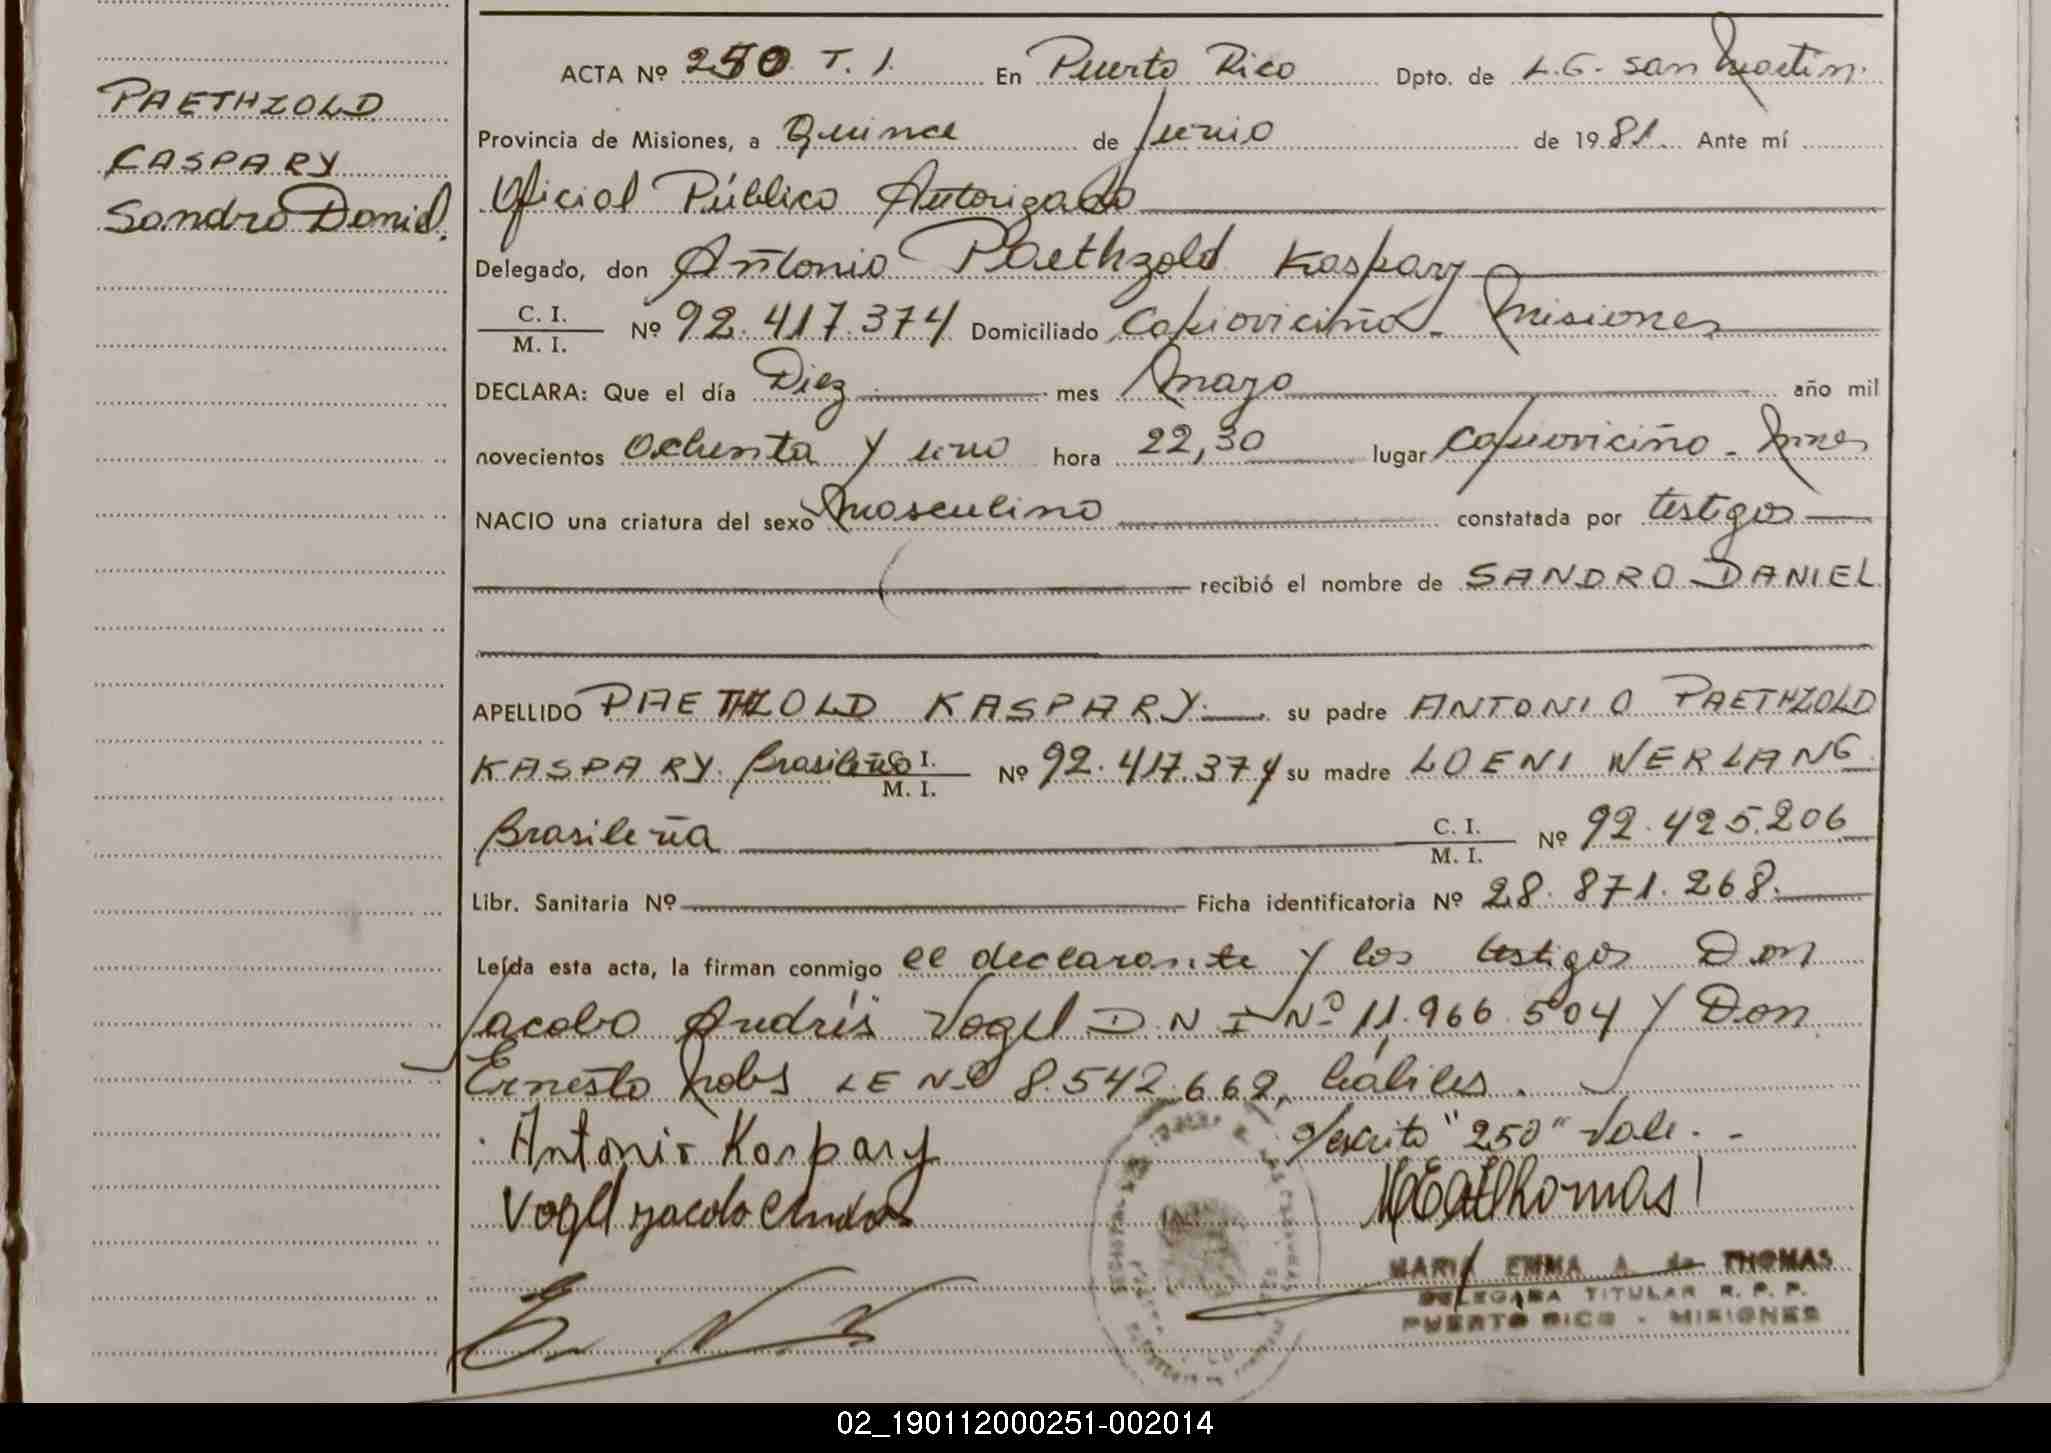 PAETHZOLD
KASPARY
Sandro Daniel.
ACTA Nº 250 T. I. En Puerto Rico Dpto. de L.G. San Martin.
Provincia de Misiones, a Quince de Junio de 1981. Ante mí
Oficial Público Autorizado
Delegado, don Antonio Paethzold Kaspary
C. I.
M. I. Nº 92.417.374 Domiciliado Capioviciño - Misiones
DECLARA: Que el día Diez mes Mayo año mil
novecientos Ochenta y uno hora 22,30 lugar Capioviciño - Mnes
NACIO una criatura del sexo Masculino constatada por testigos
recibió el nombre de SANDRO DANIEL
APELLIDO PAETHZOLD KASPARY su padre ANTONIO PAETHZOLD
KASPARY. Brasileño C. I. M. I. Nº 92.417.374 su madre LOENI WERLANG
Brasileña C. I. M. I. Nº 92.425.206
Libr. Sanitaria Nº Ficha identificatoria Nº 28.871.268.
Leída esta acta, la firman conmigo el declarante y los testigos Don
Jacobo Andrés Vogel D.N.I Nº 11.966.504 y Don
Ernesto LE Nº 8.542.662, hábiles.
"250" Vale. -
Antonio Kaspary
Vogel Jacobo Andres
MEAdThomas
MARIA EMMA A. de THOMAS
DELEGADA TITULAR R. P. P.
PUERTO RICO - MISIONES
02_190112000251-002014